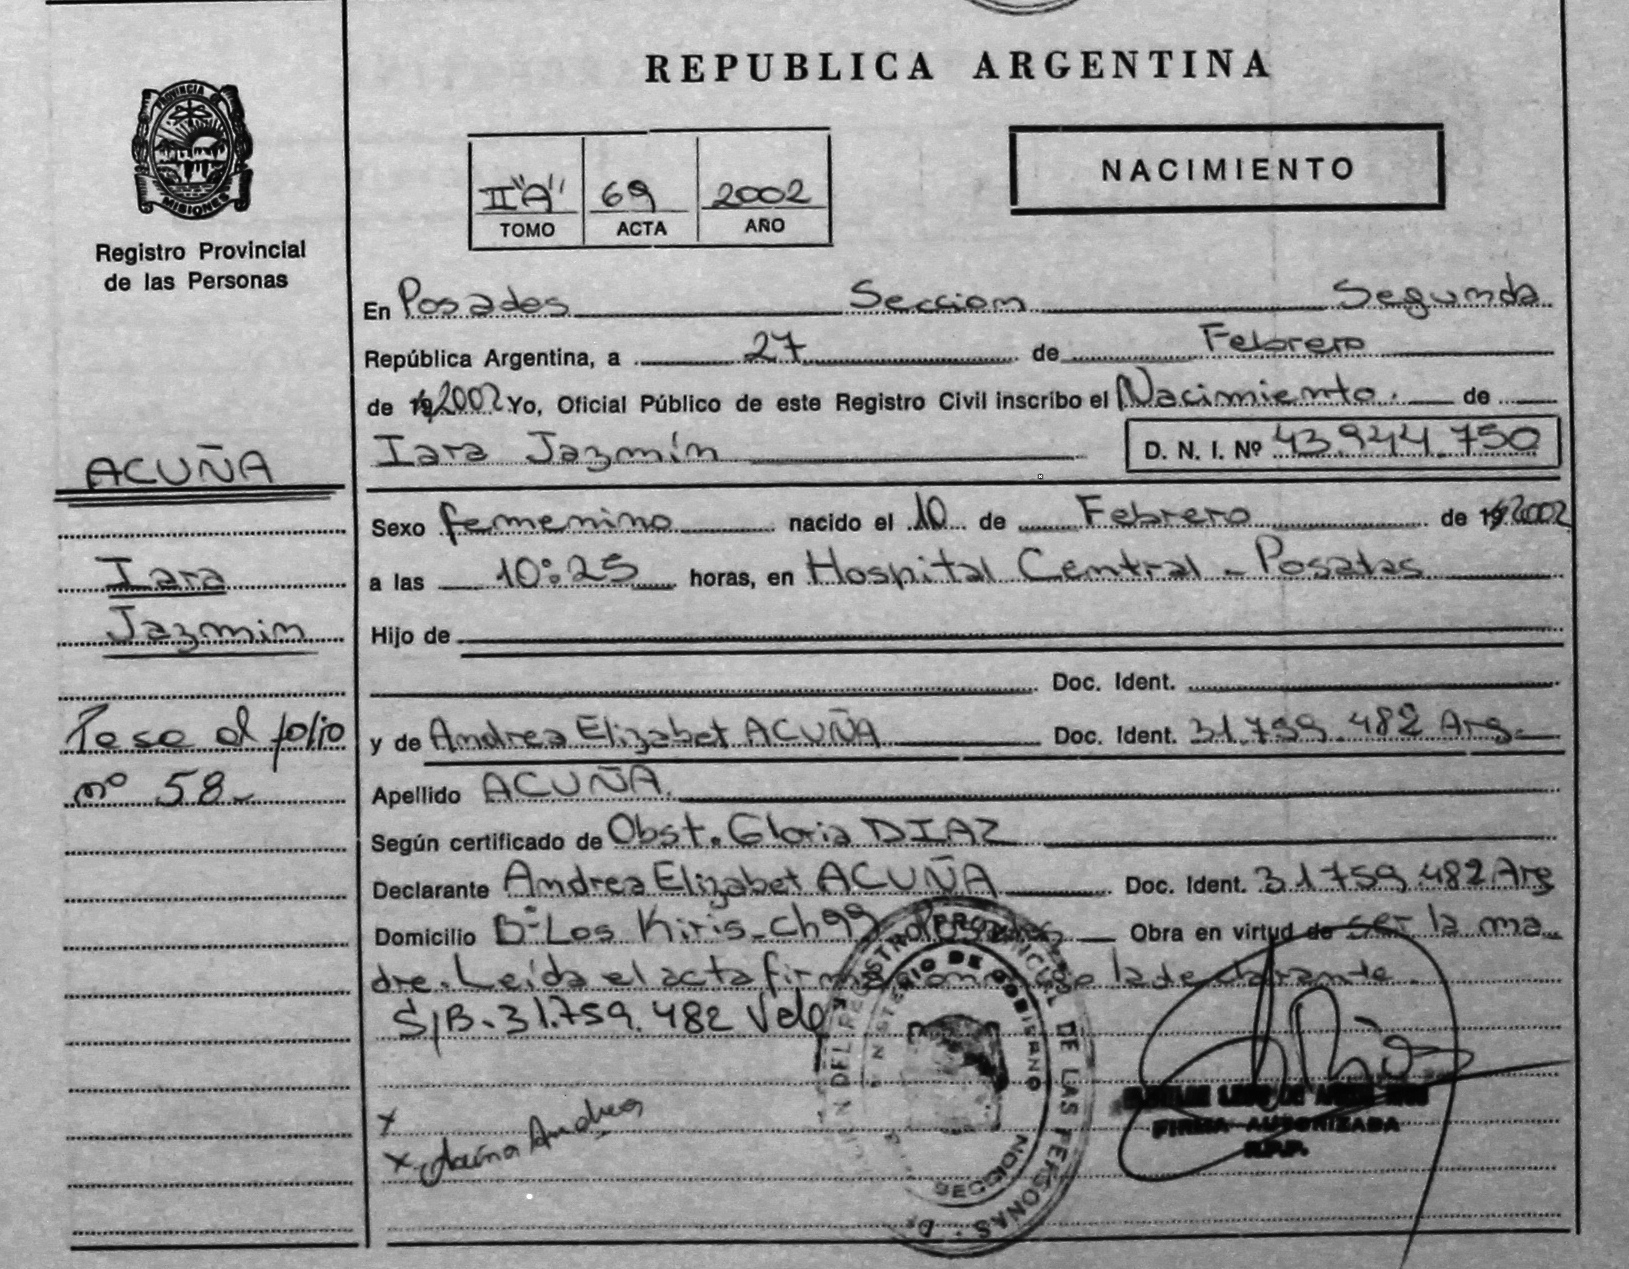 REPUBLICA ARGENTINA
PROVINCIA DE
MISIONES
Registro Provincial
de las Personas
NACIMIENTO
II "A" 69 2002
TOMO ACTA AÑO
En Posadas Seccion Segunda
República Argentina, a 27 de Febrero
de 19 2002 Yo, Oficial Público de este Registro Civil inscribo el Nacimiento. de
Iara Jazmín D. N. I. Nº 43.944.750
ACUÑA
Sexo femenino nacido el 10 de Febrero de 19 2002
Iara
a las 10:25 horas, en Hospital Central - Posadas
Jazmin
Hijo de
Doc. Ident.
Pase al folio
nº 58-
y de Andrea Elizabet ACUÑA Doc. Ident. 31.759.482 Arg.
Apellido ACUÑA.
Según certificado de Obst. Gloria DIAZ
Declarante Andrea Elizabet ACUÑA Doc. Ident. 31759.482 Arg
Domicilio Bº Los Kiris - Ch 99 Posadas Obra en virtud de ser la ma
dre. Leída el acta firma la declarante.
S/B. 31.759.482 Vale
x
x Acuña Andrea
DEL REGISTRO PROVINCIAL DE LAS PERSONAS
MINISTERIO DE GOBIERNO
SECCION
FIRMA AUTORIZADA
R.P.P.